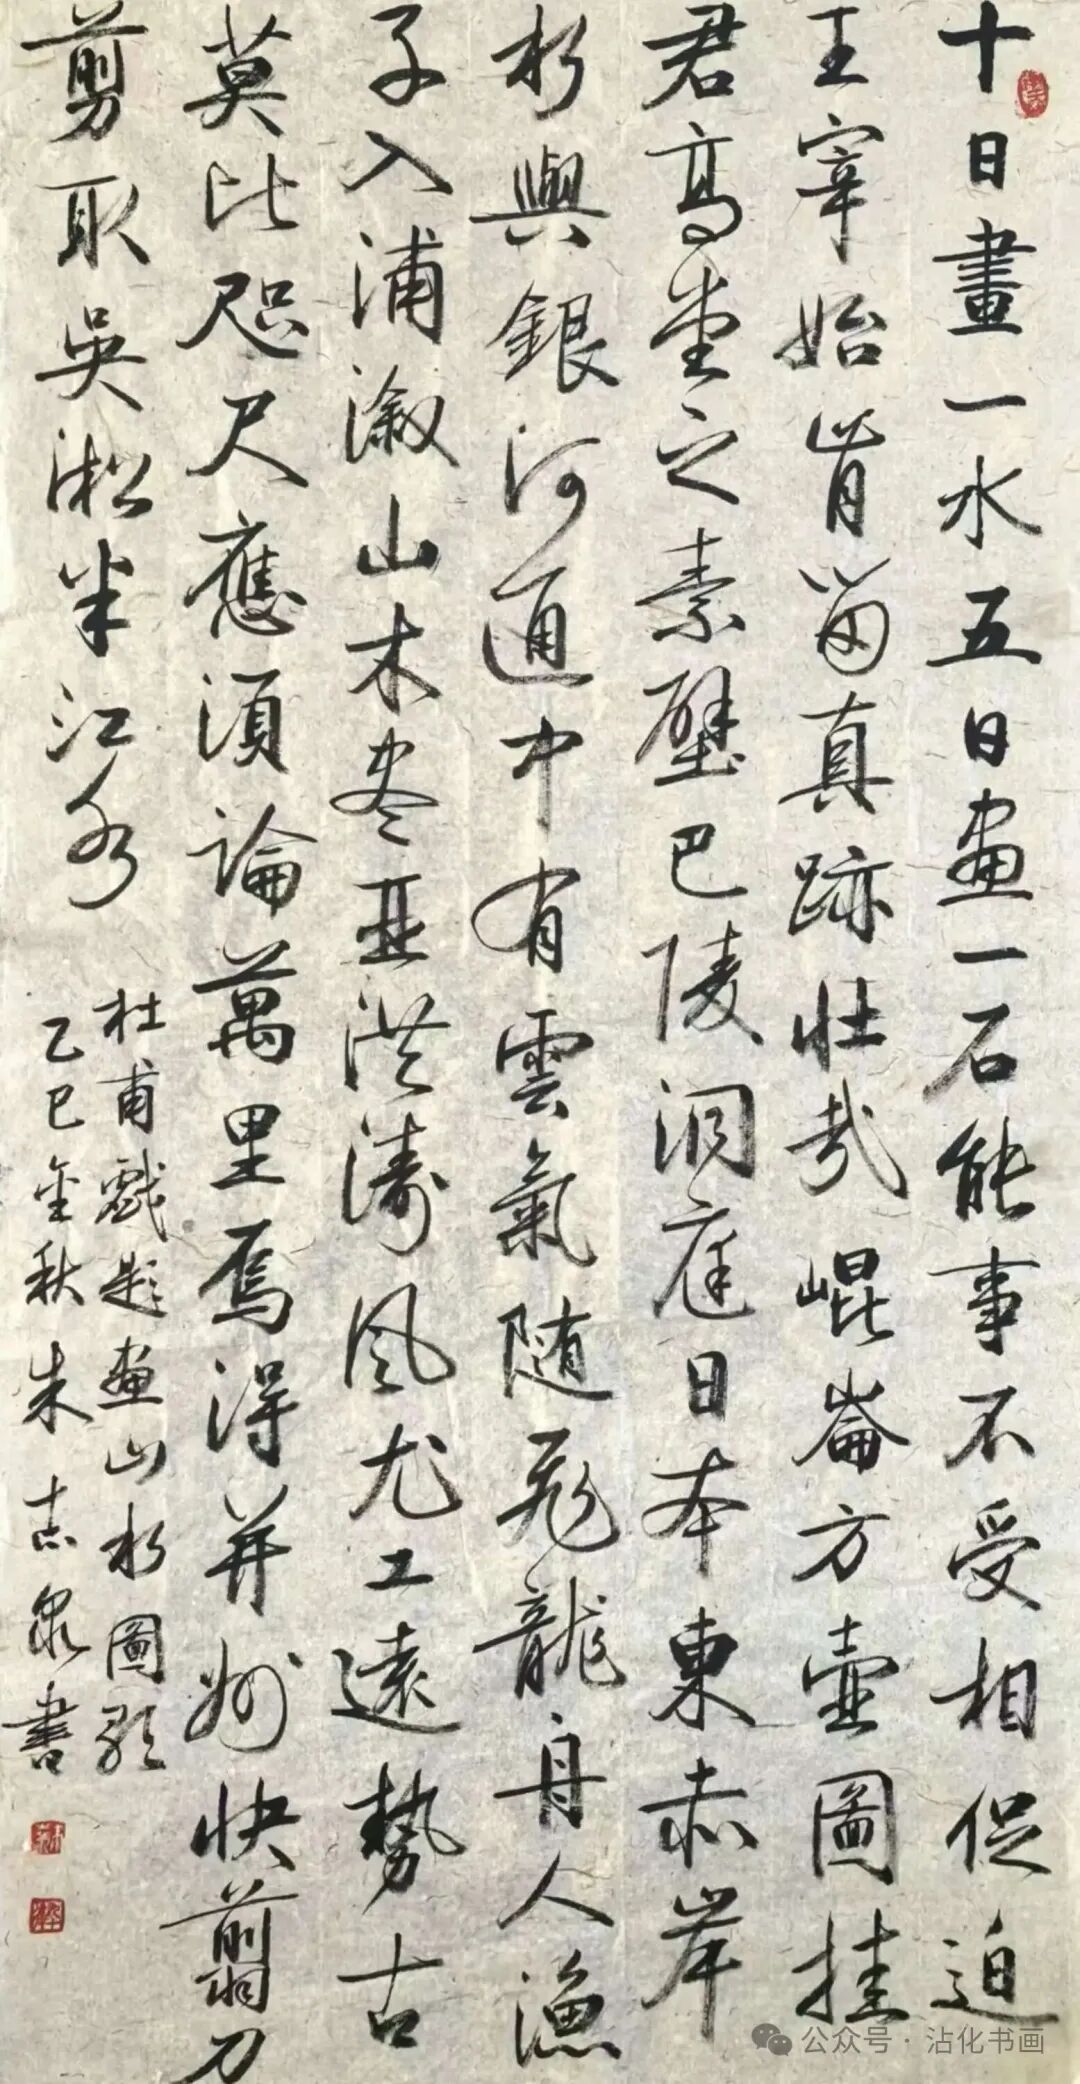 十日畫一水五日畫一石能事不受相促迫
王宰始肯留真跡壯哉崐崙方壺圖挂
君高堂之素壁巴陵洞庭日本東赤岸
水與銀河通中有雲氣隨飛龍舟人漁
子入浦溆山木盡亞洪濤風尤工遠勢古
莫比咫尺應須論萬里焉得并州快翦刀
剪取吳淞半江水
杜甫戲題畫山水圖歌
乙巳金秋朱志泉書
公众号·沾化书画